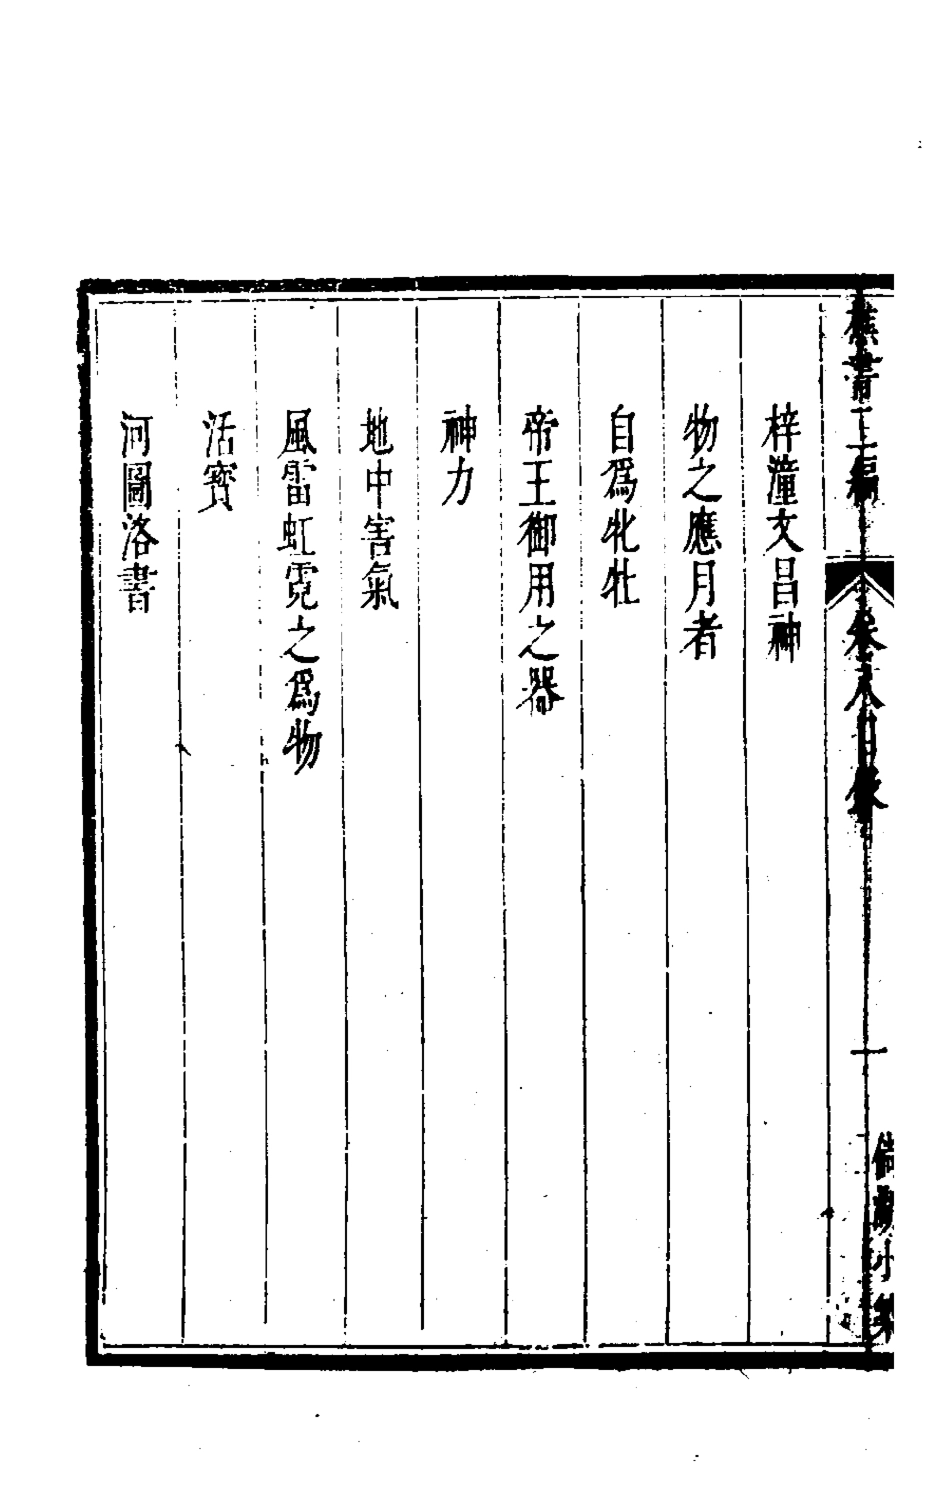 樵書二編
卷八目錄
一
梓潼文昌神
物之應月者
自爲牝牡
帝王御用之器
神力
地中害氣
風雷虹霓之爲物
活寶
河圖洛書